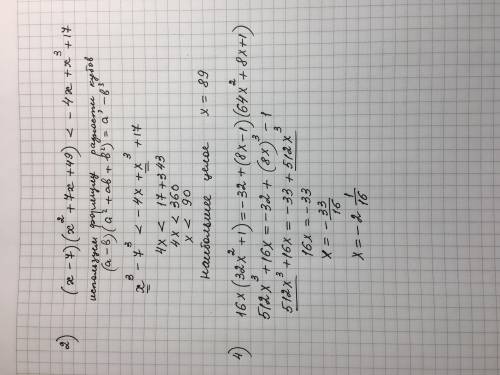 2) (x - 7)(x² + 7x + 49) < - 4x + x³ + 17
используем формулу разности кубов
(a - b)(a² + ab + b²) = a³ - b³
x³ - 7³ < - 4x + x³ + 17
4x < 17 + 343
4x < 360
x < 90
наибольшее целое x = 89
4) 16x(32x² + 1) = -32 + (8x - 1)(64x² + 8x + 1)
512x³ + 16x = -32 + (8x)³ - 1
512x³ + 16x = -33 + 512x³
16x = -33
x = - 33/16
x = -2 1/16